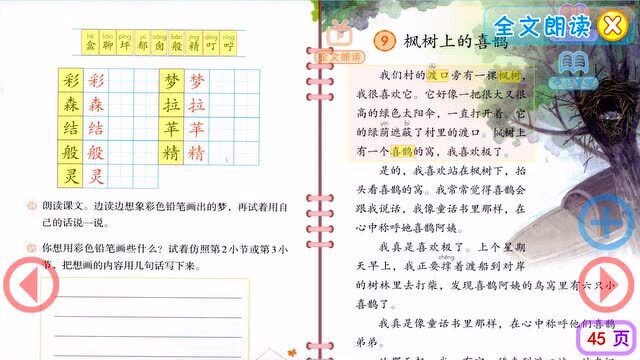 hé liáo píng yù cōng bān jīng dīng níng
盒 聊 坪 郁 囱 般 精 叮 咛
彩 彩 梦 梦
森 森 拉 拉
结 结 苹 苹
般 般 精 精
灵 灵
朗读课文。边读边想象彩色铅笔画出的梦，再试着用自
己的话说一说。
你想用彩色铅笔画些什么？试着仿照第2小节或第3小
节，把想画的内容用几句话写下来。
全文朗读
全文朗读
9 枫树上的喜鹊
我们村的渡口旁有一棵枫树，
我很喜欢它。它好像一把很大又很
高的绿色太阳伞，一直打开着。它
yīn bì
的绿荫遮蔽了村里的渡口。枫树上
有一个喜鹊的窝，我喜欢极了。
是的，我喜欢站在枫树下，抬
头看喜鹊的窝。我常常觉得喜鹊会
跟我说话，我像童话书里那样，在
心中称呼她喜鹊阿姨。
我真是喜欢极了。上个星期
chēng
天早上，我正要撑着渡船到对岸
的树林里去打柴，发现喜鹊阿姨的鸟窝里有六只小
喜鹊了。
我真是像童话书里那样，在心中称呼他们喜鹊
弟弟。
45 页